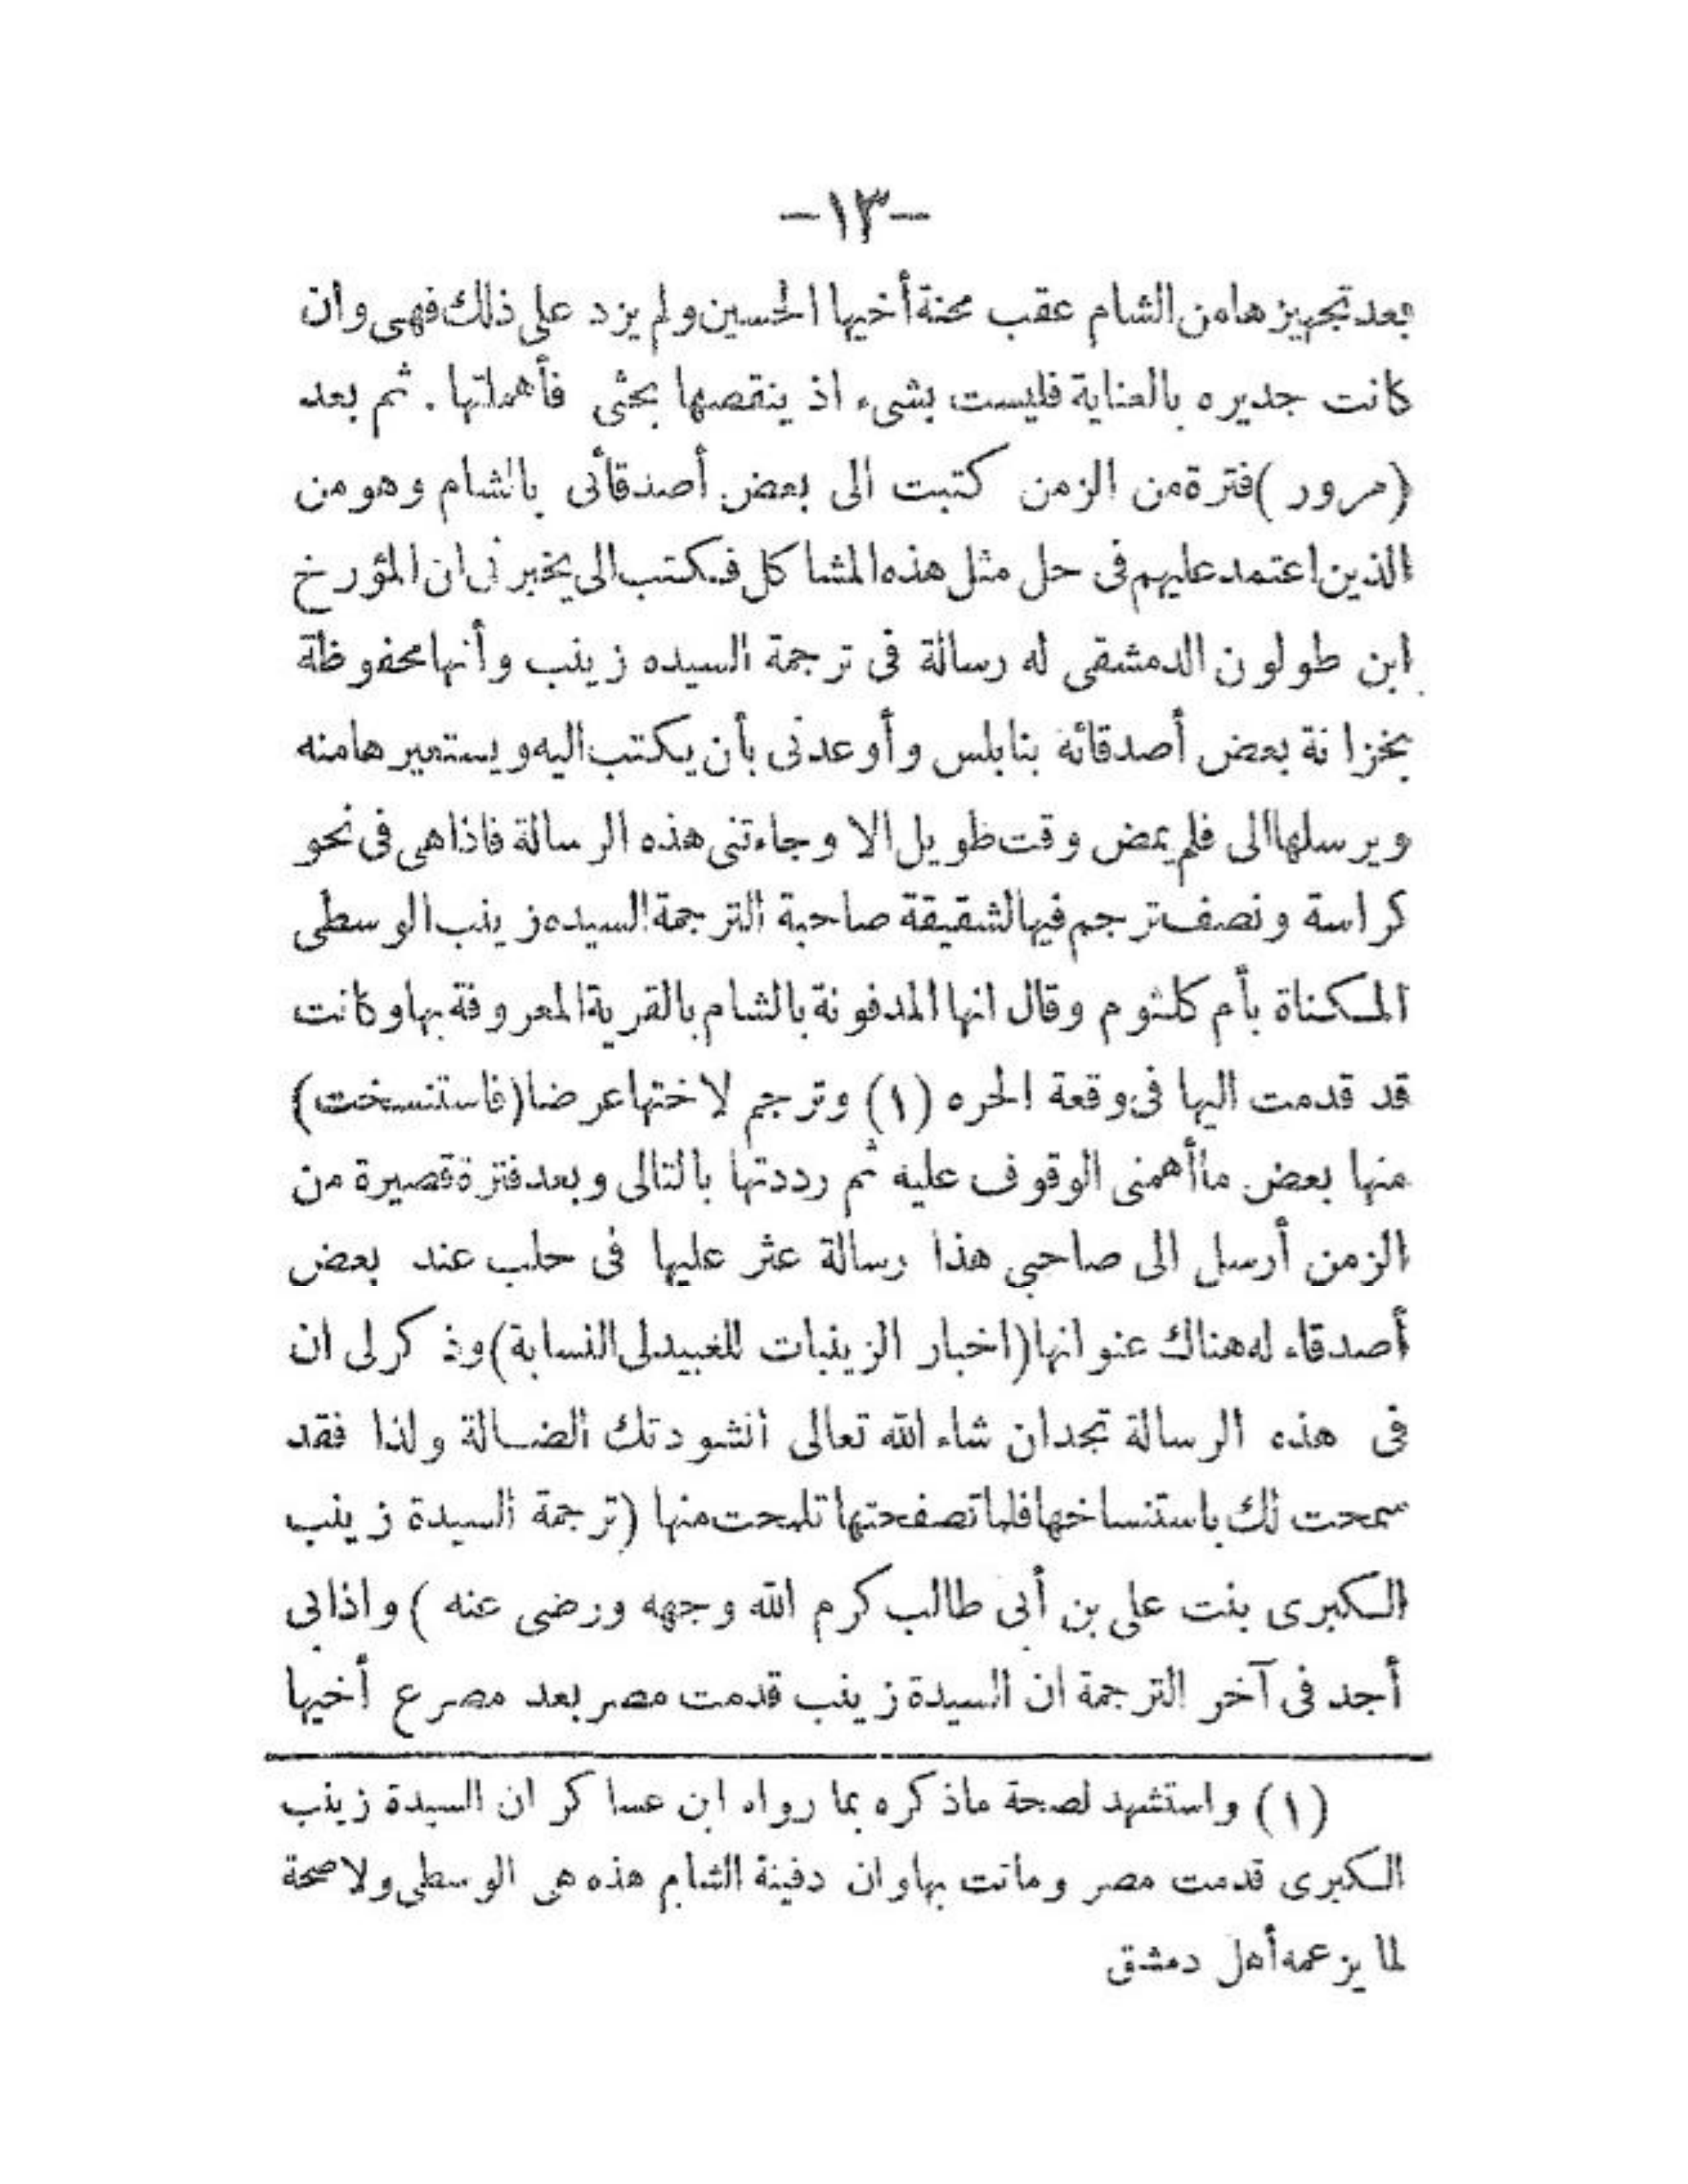 -١٣-
بعد تجهيزها من الشام عقب محنة أخيها الحسين ولم يزد على ذلك فهى وان
كانت جديره بالعناية فليست بشىء اذ ينقصها بحثى فأهملتها . ثم بعد
(مرور) فترة من الزمن كتبت الى بعض أصدقأئى بالشام وهو من
الذين اعتمد عليهم فى حل مثل هذه المشاكل فكتب الى يخبرنى ان المؤرخ
ابن طولون الدمشقى له رسالة فى ترجمة السيده زينب وأنها محفوظة
بخزانة بعض أصدقائه بنابلس وأوعدنى بأن يكتب اليه ويستعيرها منه
ويرسلها الى فلم يمض وقت طويل الا وجاءتنى هذه الرسالة فاذا هى فى نحو
كراسة ونصف ترجم فيها لشقيقة صاحبة الترجمة السيده زينب الوسطى
المكناة بأم كلثوم وقال انها المدفونة بالشام بالقرية المعروفة بها وكانت
قد قدمت اليها فى وقعة الحره (١) وترجم لاختها عرضا (فاستنسخت)
منها بعض ماأهمنى الوقوف عليه ثم رددتها بالتالى وبعد فترة قصيرة من
الزمن أرسل الى صاحبى هذا رسالة عثر عليها فى حلب عند بعض
أصدقاء له هناك عنوانها (اخبار الزينبات للعبيدلى النسابة) وذكر لى ان
فى هذه الرسالة تجد ان شاء الله تعالى انشودتك الضالة ولذا فقد
سمحت لك باستنساخها فلما تصفحتها تلمحت منها (ترجمة السيدة زينب
الكبرى بنت على بن أبى طالب كرم الله وجهه ورضى عنه) واذا بى
أجد فى آخر الترجمة ان السيدة زينب قدمت مصر بعد مصرع أخيها
(١) واستشهد لصحة ماذكره بما رواه ابن عساكر ان السيدة زينب
الكبرى قدمت مصر وماتت بها وان دفينة الشام هذه هى الوسطى ولا صحة
لما يزعمه أهل دمشق